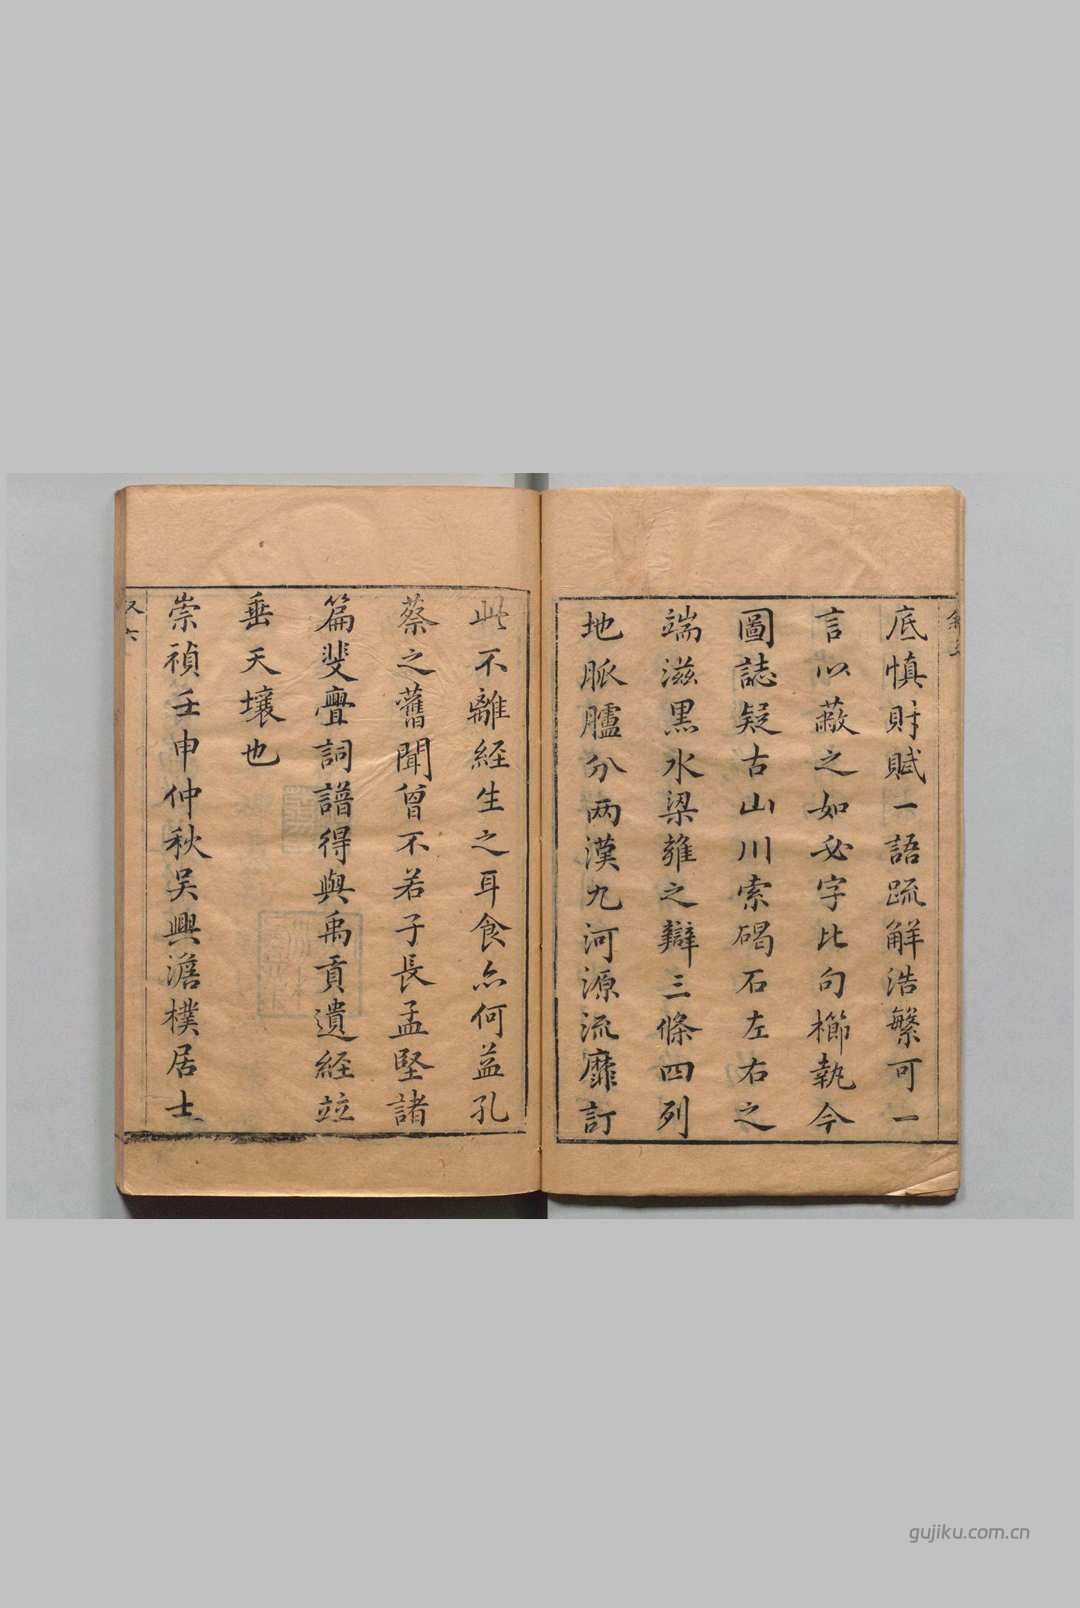 底慎財賦一語疏解浩繁可一
言以蔽之如必字比句櫛執今
圖誌疑古山川索碣石左右之
端滋黒水梁雍之辯三條四列
地脈臚分两漢九河源流靡訂
此不離經生之耳食亦何益孔
蔡之舊聞曾不若子長孟堅諸
篇斐亹詞譜得與禹貢遺經竝
垂天壤也
崇禎壬申仲秋吴興澹樸居士
gujiku.com.cn